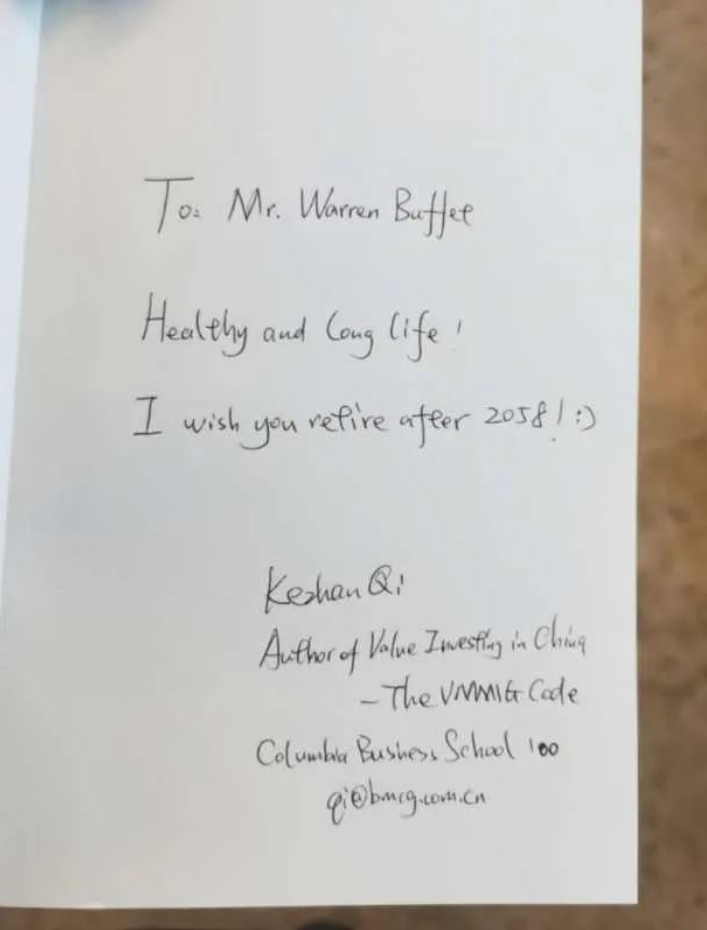 To: Mr. Warren Buffet
Healthy and Long life!
I wish you retire after 2058! :)
Kezhan Qi
Author of Value Investing in China
- The VMMIG Code
Columbia Business School '00
qi@bmcg.com.cn